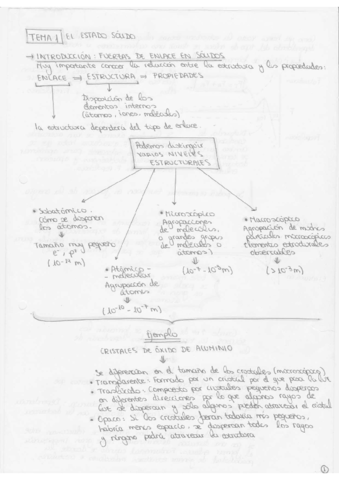 TEMA 1 EL ESTADO SÓLIDO
→ INTRODUCCIÓN: FUERZAS DE ENLACE EN SÓLIDOS
Muy importante conocer la relación entre la estructura y las propiedades:
ENLACE → ESTRUCTURA → PROPIEDADES
Disposición de los
elementos internos
(átomos, iones, moléculas)
La estructura dependerá del tipo de enlace.
Podemos distinguir
VARIOS NIVELES
ESTRUCTURALES
* Subatómico:
cómo se disponen
los átomos.
Tamaño muy pequeño
e⁻, p⁺
* Atómico-
molecular
Agrupación de
átomos
* Microscópico
Agrupaciones
de moléculas,
o grandes grupos
de moléculas o
átomos)
* Macroscópico
Agrupación de
partículas microscópicas
elementos estructurales
observables
Ejemplo
CRISTALES DE ÓXIDO DE ALUMINIO
Se diferencian en el tamaño de los cristales (microscópico)
* Transparente: Formado por un cristal por el que pasa la luz.
* Traslúcido: Compuesto por cristales pequeños dispersos
en diferentes direcciones por lo que algunos rayos de
luz se dispersan y sólo algunos pueden atravesar el cristal
* Opaco: Si los cristales fueran todavía más pequeños,
habría menos espacio: se dispersan todos los rayos
y ninguno podrá atravesar la estructura
①